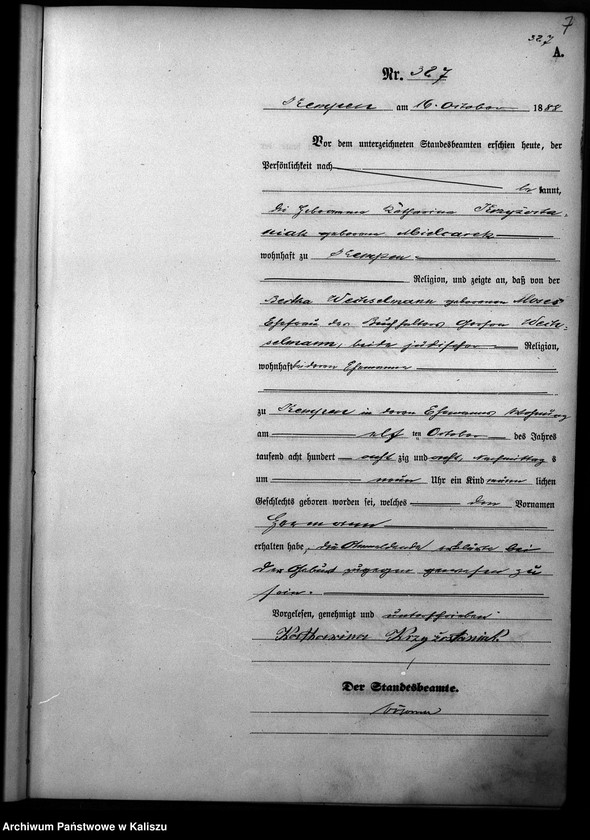 7
327
A.
Nr. 327
Kempen am 16. October 1888
Vor dem unterzeichneten Standesbeamten erschien heute, der
Persönlichkeit nach
be kannt,
die Hebamme Katharina Krzyżosta-
niak geborene Mielcarek
wohnhaft zu Kempen
Religion, und zeigte an, daß von der
Bertha Wechselmann geborenen Moses
Ehefrau des Buchhalters Gerson Wech-
selmann, beide jüdischer Religion,
wohnhaft bei deren Ehemanne
zu Kempen in deren Ehemanns Wohnung
am elf ten October des Jahres
tausend acht hundert acht zig und acht, Nachmittag s
um neun Uhr ein Kind männ lichen
Geschlechts geboren worden sei, welches den Vornamen
Hermann
erhalten habe, die Anmeldende erklärte bei
der Geburt zugegen gewesen zu
sein.
Vorgelesen, genehmigt und unterschrieben
Katharina Krzyżostaniak
Der Standesbeamte.
Archiwum Państwowe w Kaliszu